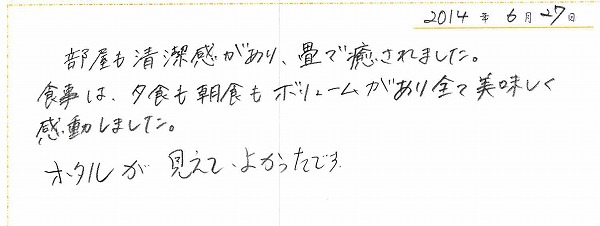 2014 年 6 月 27 日
部屋も清潔感があり、畳で癒されました。
食事は、夕食も朝食もボリュームがあり全て美味しく
感動しました。
ホタルが見えて、よかったです